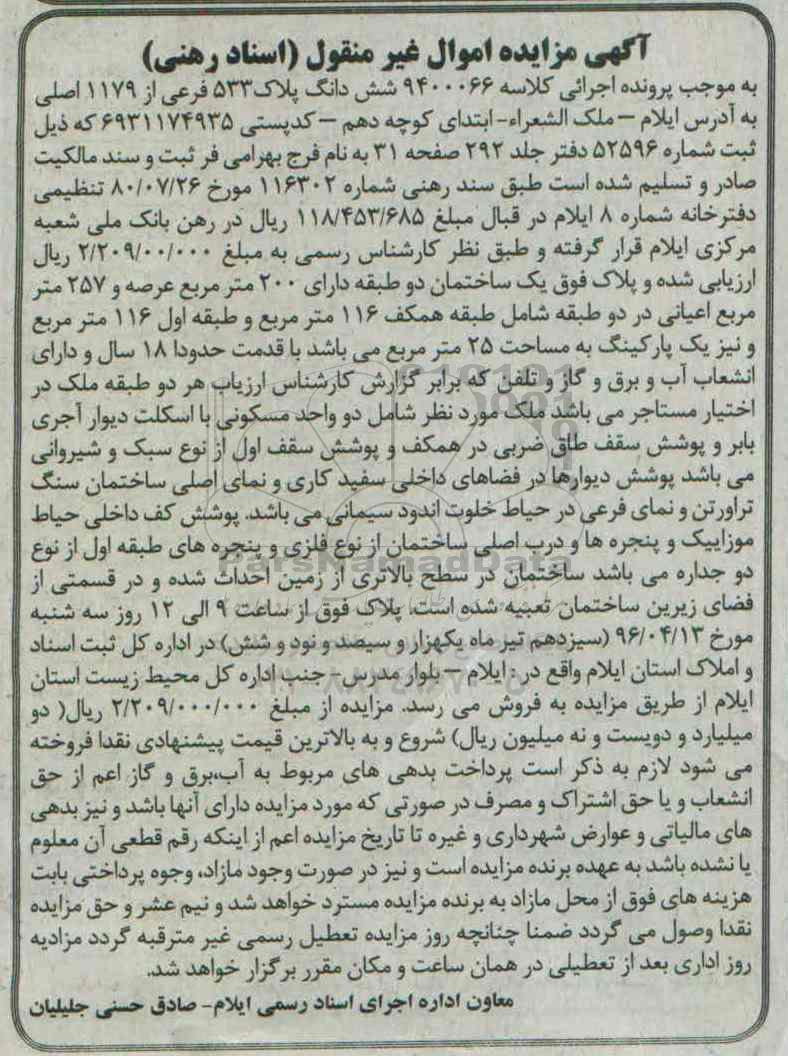 آگهی مزایده اموال غیر منقول (اسناد رهنی)
به موجب پرونده اجرائی کلاسه ۹۴۰۰۰۶۶ شش دانگ پلاک۵۳۳ فرعی از ۱۱۷۹ اصلی
به آدرس ایلام – ملک الشعراء- ابتدای کوچه دهم – کدپستی ۶۹۳۱۱۷۴۹۳۵ که ذیل
ثبت شماره ۵۲۵۹۶ دفتر جلد ۲۹۲ صفحه ۳۱ به نام فرج بهرامی فر ثبت و سند مالکیت
صادر و تسلیم شده است طبق سند رهنی شماره ۱۱۶۳۰۲ مورخ ۸۰/۰۷/۲۶ تنظیمی
دفترخانه شماره ۸ ایلام در قبال مبلغ ۱۱۸/۴۵۳/۶۸۵ ریال در رهن بانک ملی شعبه
مرکزی ایلام قرار گرفته و طبق نظر کارشناس رسمی به مبلغ ۲/۲۰۹/۰۰/۰۰۰ ریال
ارزیابی شده و پلاک فوق یک ساختمان دو طبقه دارای ۲۰۰ متر مربع عرصه و ۲۵۷ متر
مربع اعیانی در دو طبقه شامل طبقه همکف ۱۱۶ متر مربع و طبقه اول ۱۱۶ متر مربع
و نیز یک پارکینگ به مساحت ۲۵ متر مربع می باشد با قدمت حدودا ۱۸ سال و دارای
انشعاب آب و برق و گاز و تلفن که برابر گزارش کارشناس ارزیاب هر دو طبقه ملک در
اختیار مستاجر می باشد ملک مورد نظر شامل دو واحد مسکونی با اسکلت دیوار آجری
بابر و پوشش سقف طاق ضربی در همکف و پوشش سقف اول از نوع سبک و شیروانی
می باشد پوشش دیوارها در فضاهای داخلی سفید کاری و نمای اصلی ساختمان سنگ
تراورتن و نمای فرعی در حیاط خلوت اندود سیمانی می باشد. پوشش کف داخلی حیاط
موزاییک و پنجره ها و درب اصلی ساختمان از نوع فلزی و پنجره های طبقه اول از نوع
دو جداره می باشد ساختمان در سطح بالاتری از زمین احداث شده و در قسمتی از
فضای زیرین ساختمان تعبیه شده است. پلاک فوق از ساعت ۹ الی ۱۲ روز سه شنبه
مورخ ۹۶/۰۴/۱۳ (سیزدهم تیر ماه یکهزار و سیصد و نود و شش) در اداره کل ثبت اسناد
و املاک استان ایلام واقع در : ایلام – بلوار مدرس- جنب اداره کل محیط زیست استان
ایلام از طریق مزایده به فروش می رسد. مزایده از مبلغ ۲/۲۰۹/۰۰۰/۰۰۰ ریال( دو
میلیارد و دویست و نه میلیون ریال) شروع و به بالاترین قیمت پیشنهادی نقدا فروخته
می شود لازم به ذکر است پرداخت بدهی های مربوط به آب،برق و گاز اعم از حق
انشعاب و یا حق اشتراک و مصرف در صورتی که مورد مزایده دارای آنها باشد و نیز بدهی
های مالیاتی و عوارض شهرداری و غیره تا تاریخ مزایده اعم از اینکه رقم قطعی آن معلوم
یا نشده باشد به عهده برنده مزایده است و نیز در صورت وجود مازاد، وجوه پرداختی بابت
هزینه های فوق از محل مازاد به برنده مزایده مسترد خواهد شد و نیم عشر و حق مزایده
نقدا وصول می گردد ضمنا چنانچه روز مزایده تعطیل رسمی غیر مترقبه گردد مزادیه
روز اداری بعد از تعطیلی در همان ساعت و مکان مقرر برگزار خواهد شد.
معاون اداره اجرای اسناد رسمی ایلام- صادق حسنی جلیلیان
ParsNamadData